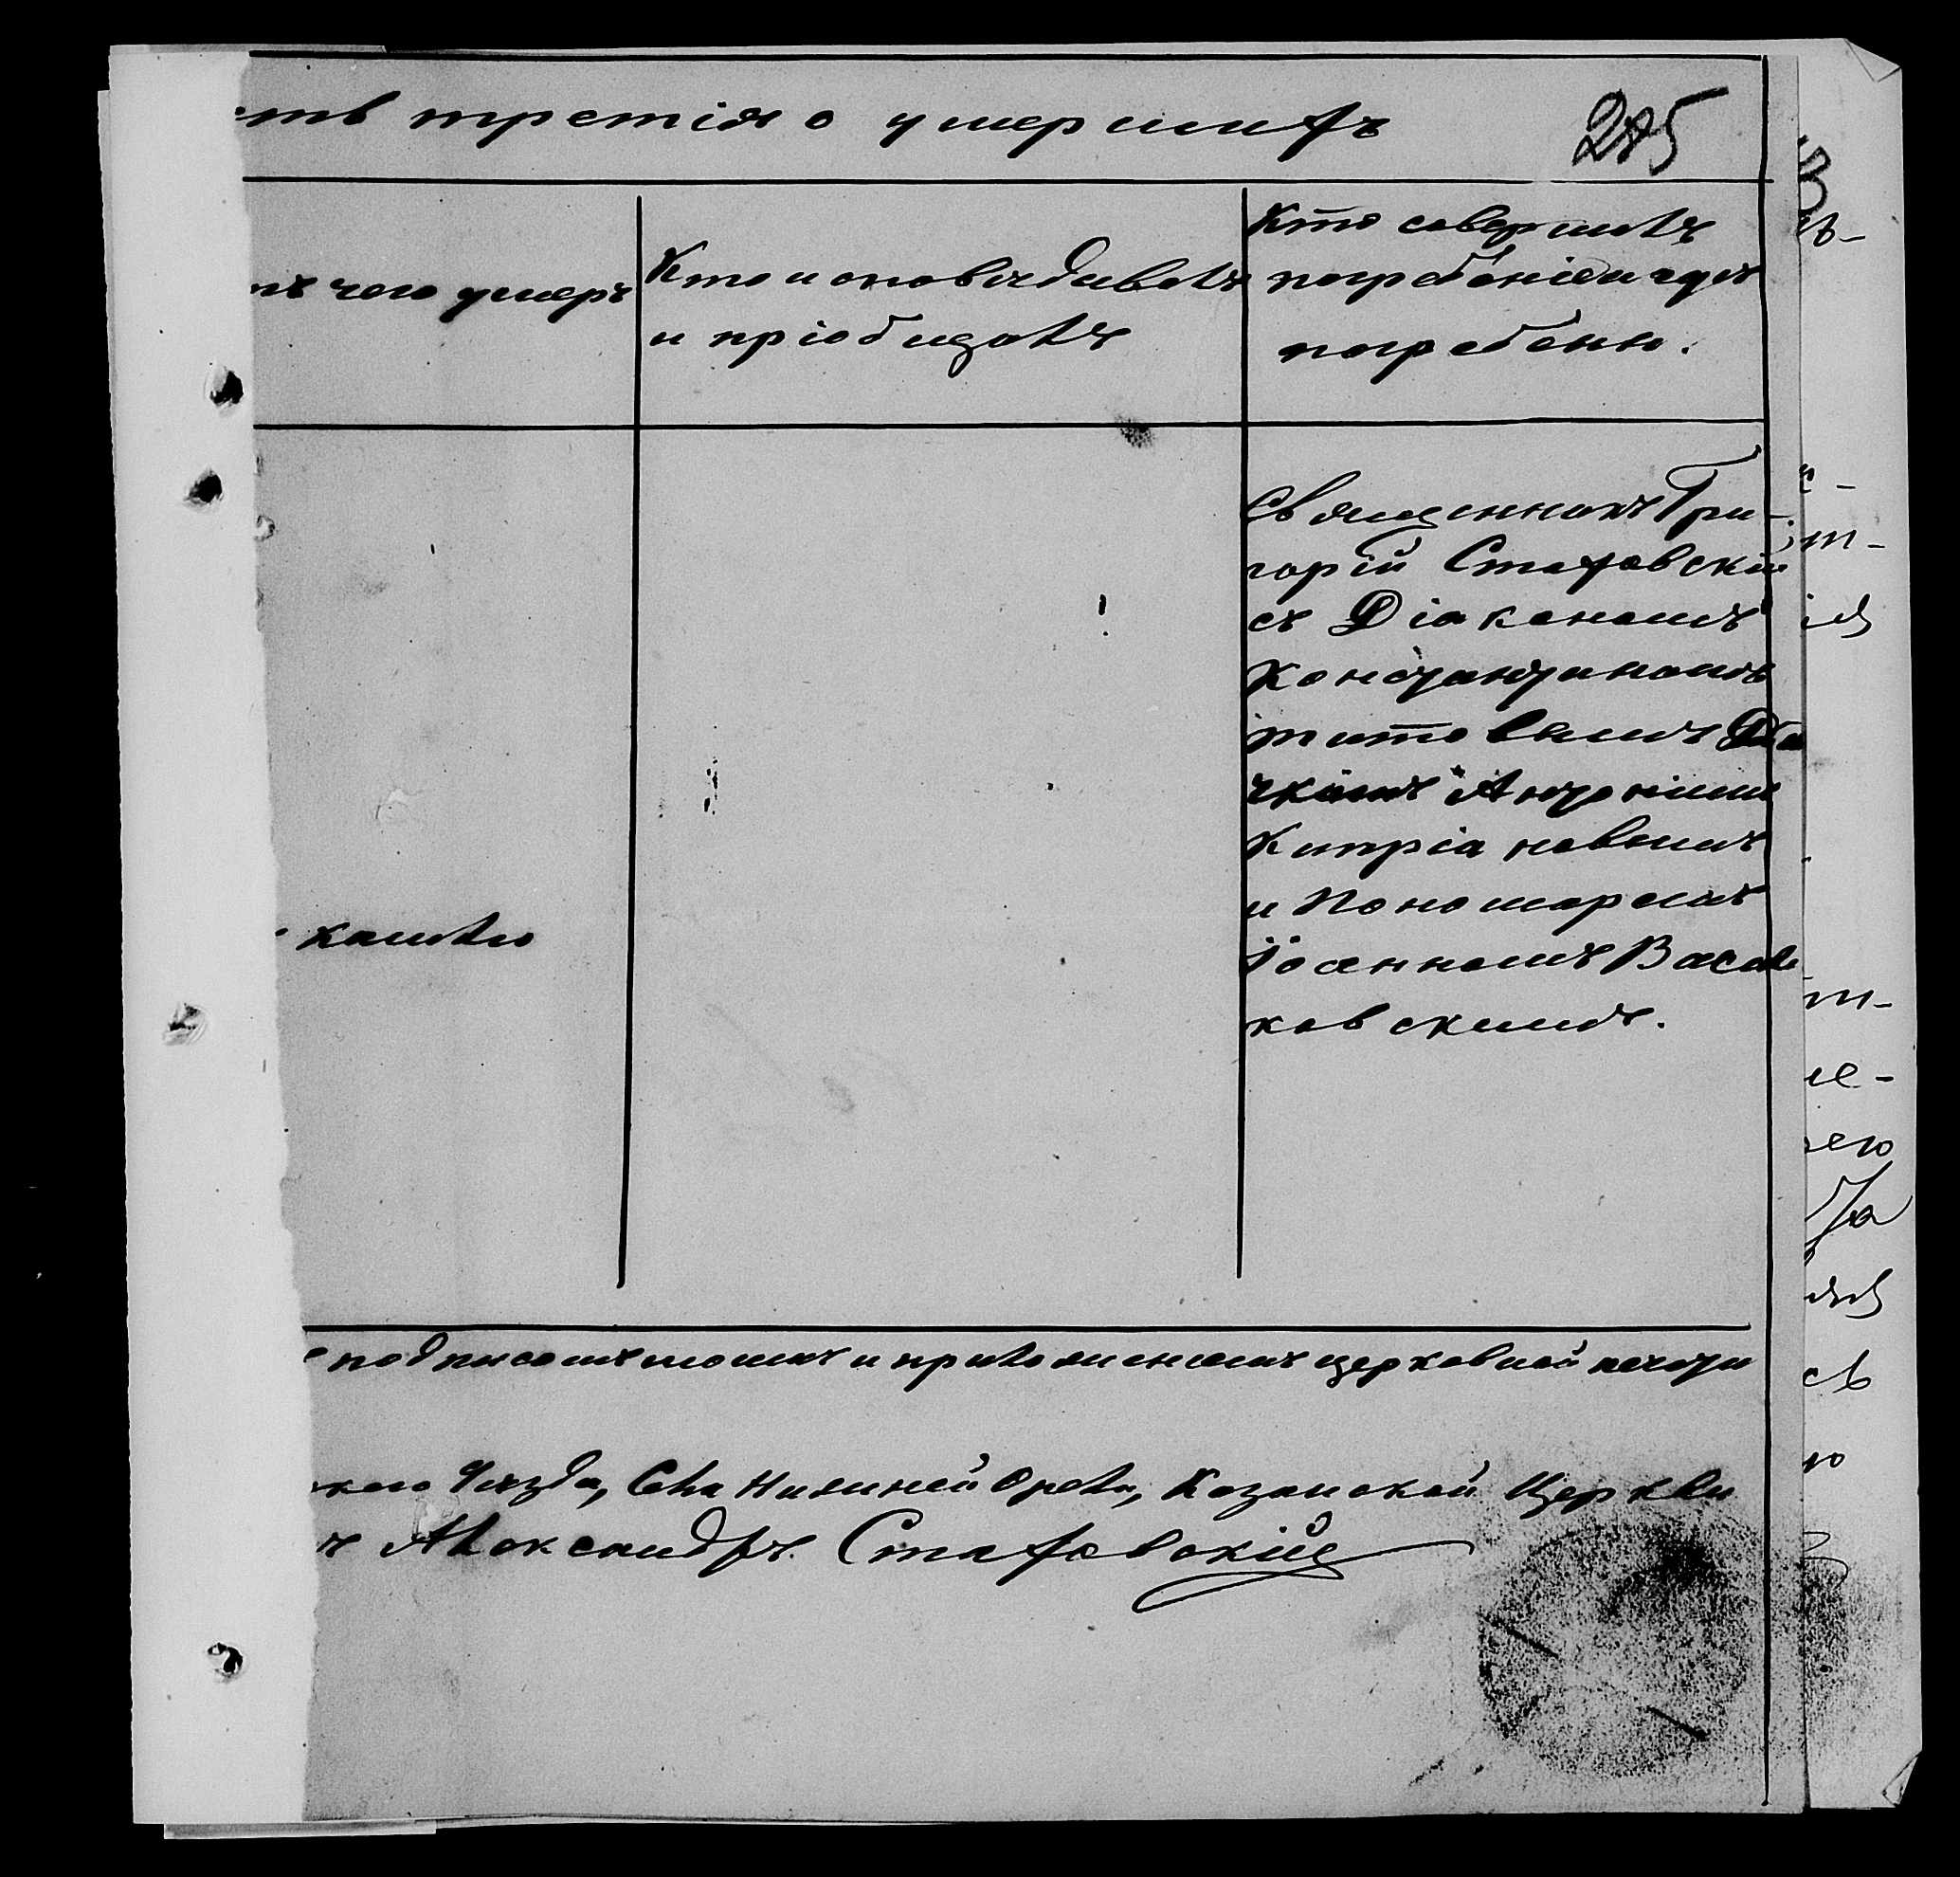 сть третія о умершихъ
285
тъ чего умеръ
Кто исповѣдивалъ
и пріобщалъ
Кто совершалъ
погребеніе и гдѣ
погребены.
Священникъ Гри-
горій Стаховскій
съ Діакономъ
Константиномъ
Титовымъ Дья
чкомъ Антоніимъ
Кипріановымъ
и Пономаремъ
Іоанномъ Васил
ковскимъ.
кашлю
подписомъ моимъ и приложеніемъ церковной печати
кого Уѣзда, Села Нижней Орели, Казанской Церкви
ъ Александръ Стаховскій